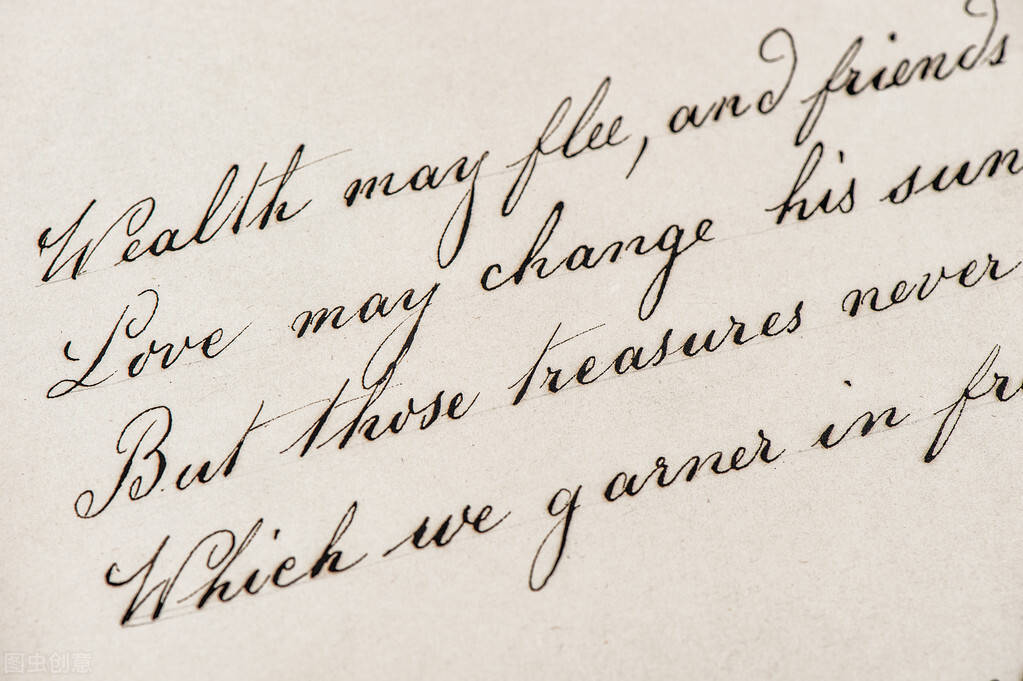 Wealth may flee, and friends
Love may change his sun
But those treasures never
Which we garner in fr
图虫创意